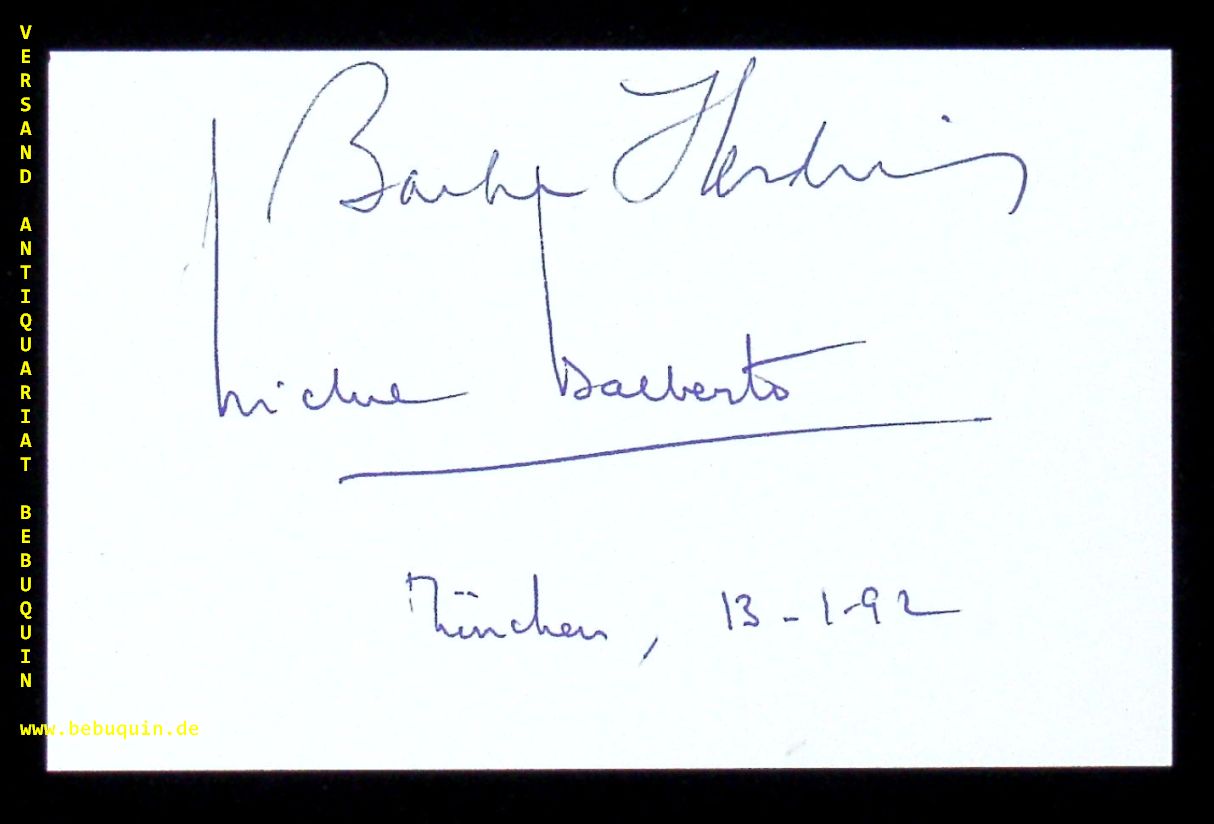 VERSAND ANTIQUARIAT BEBUQUIN
www.bebuquin.de
Barbara Hendricks
Michel Dalberto
München, 13-1-92